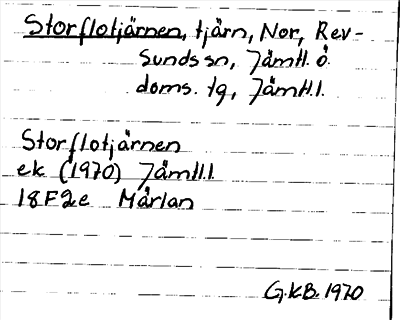 Storflotjärnen, tjärn, Nor, Rev-
sunds sn, Jämtl. ö.
doms. tg, Jämtl. l.
Storflotjärnen
ek (1970) Jämtl. l.
18F2e Mårlan
G.K.B. 1970